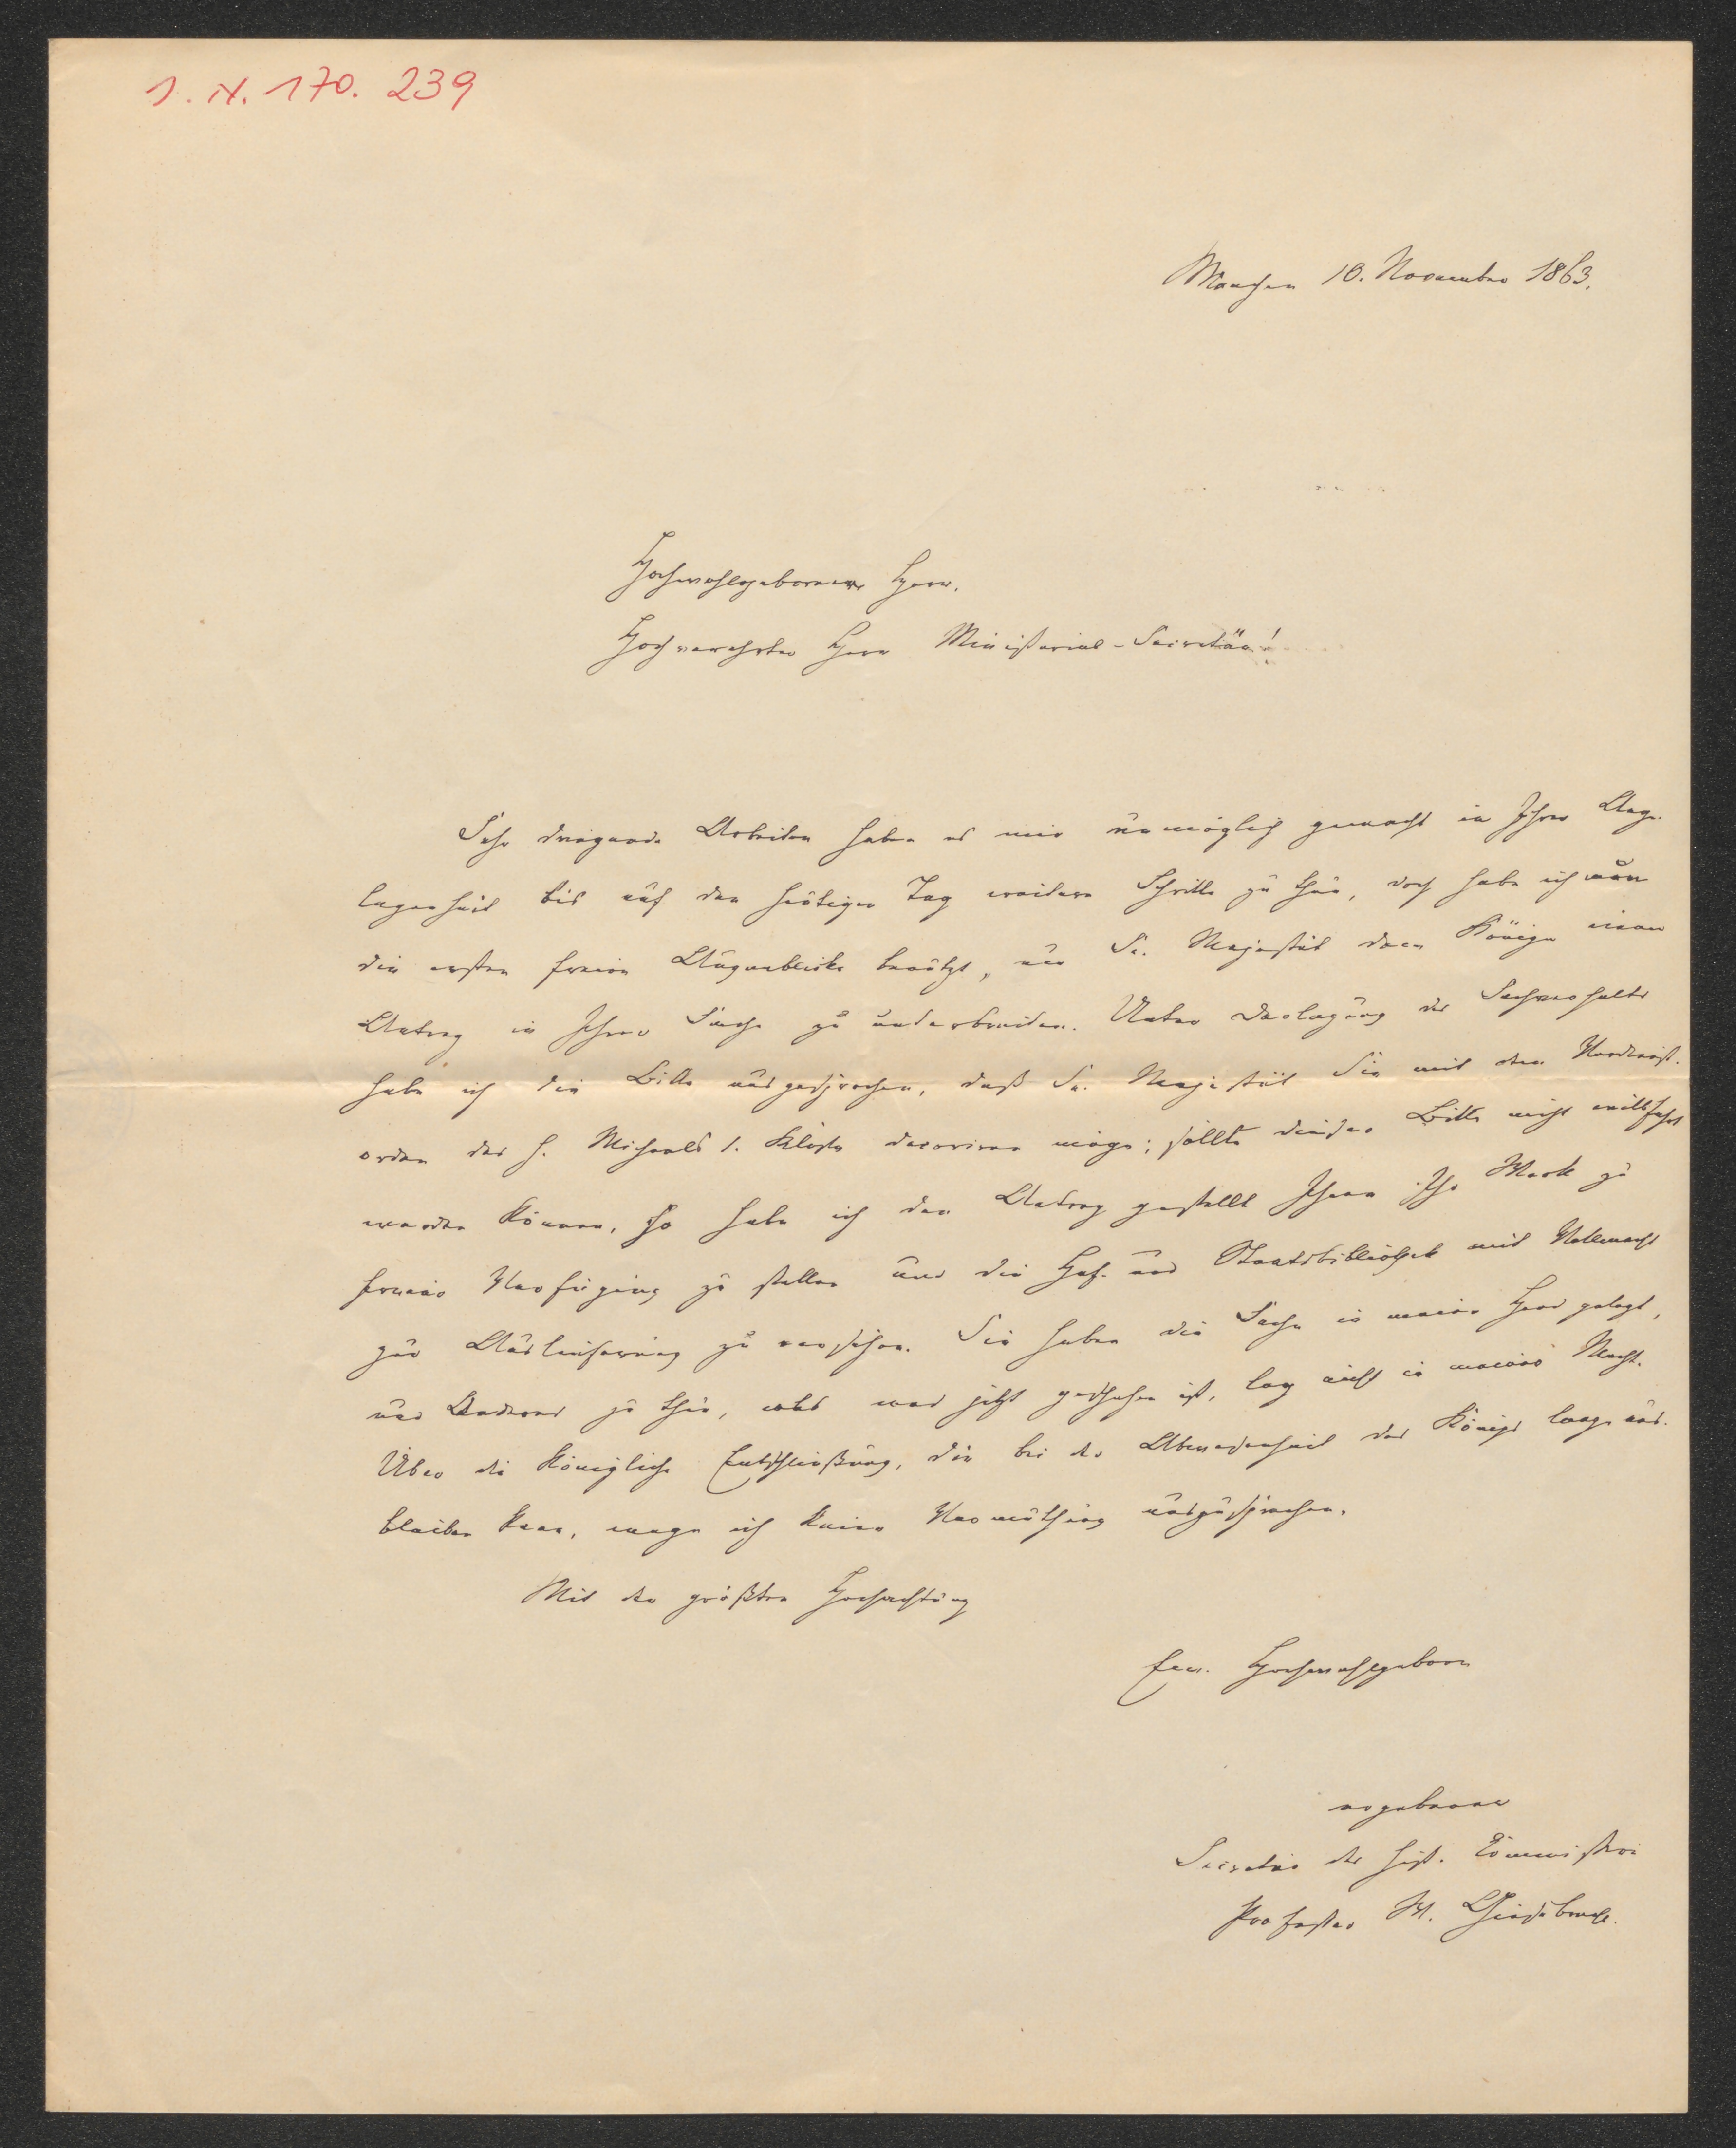 1. N. 170. 239
München 10. November 1863.
Hochwohlgeborner Herr,
Hochverehrter Herr Ministerial-Secretär!
Sehr dringende Arbeiten haben es mir unmöglich gemacht in Ihrer Ange-
legenheit bis auf den heutigen Tag weitere Schritte zu thun, doch habe ich nun
die ersten freien Augenblicke benützt, um Sr. Majestät dem Könige einen
Antrag in Ihrer Sache zu unterbreiten. Unter Darlegung des Sachverhalts
habe ich die Bitte ausgesprochen, daß Se. Majestät Sie mit dem Verdienst-
orden des h. Michaels 1. Klasse decoriren möge; sollte dieser Bitte nicht willfahrt
werden können, so habe ich den Antrag gestellt Ihnen Ihr Werk zu
freier Verfügung zu stellen und die Hof- und Staatsbibliothek mit Vollmacht
zur Auslieferung zu versehen. Sie haben die Sache in meine Hand gelegt,
und Anderes zu thun, als was jetzt geschehen ist, lag nicht in meiner Macht.
Über die Königliche Entschließung, die bei der Abwesenheit des Königs lange aus-
bleiben kann, wage ich keine Vermuthung auszusprechen.
Mit der größten Hochachtung
Euer Hochwohlgeboren
ergebener
Secretär der hist. Commission
Professor W. Giesebrecht.